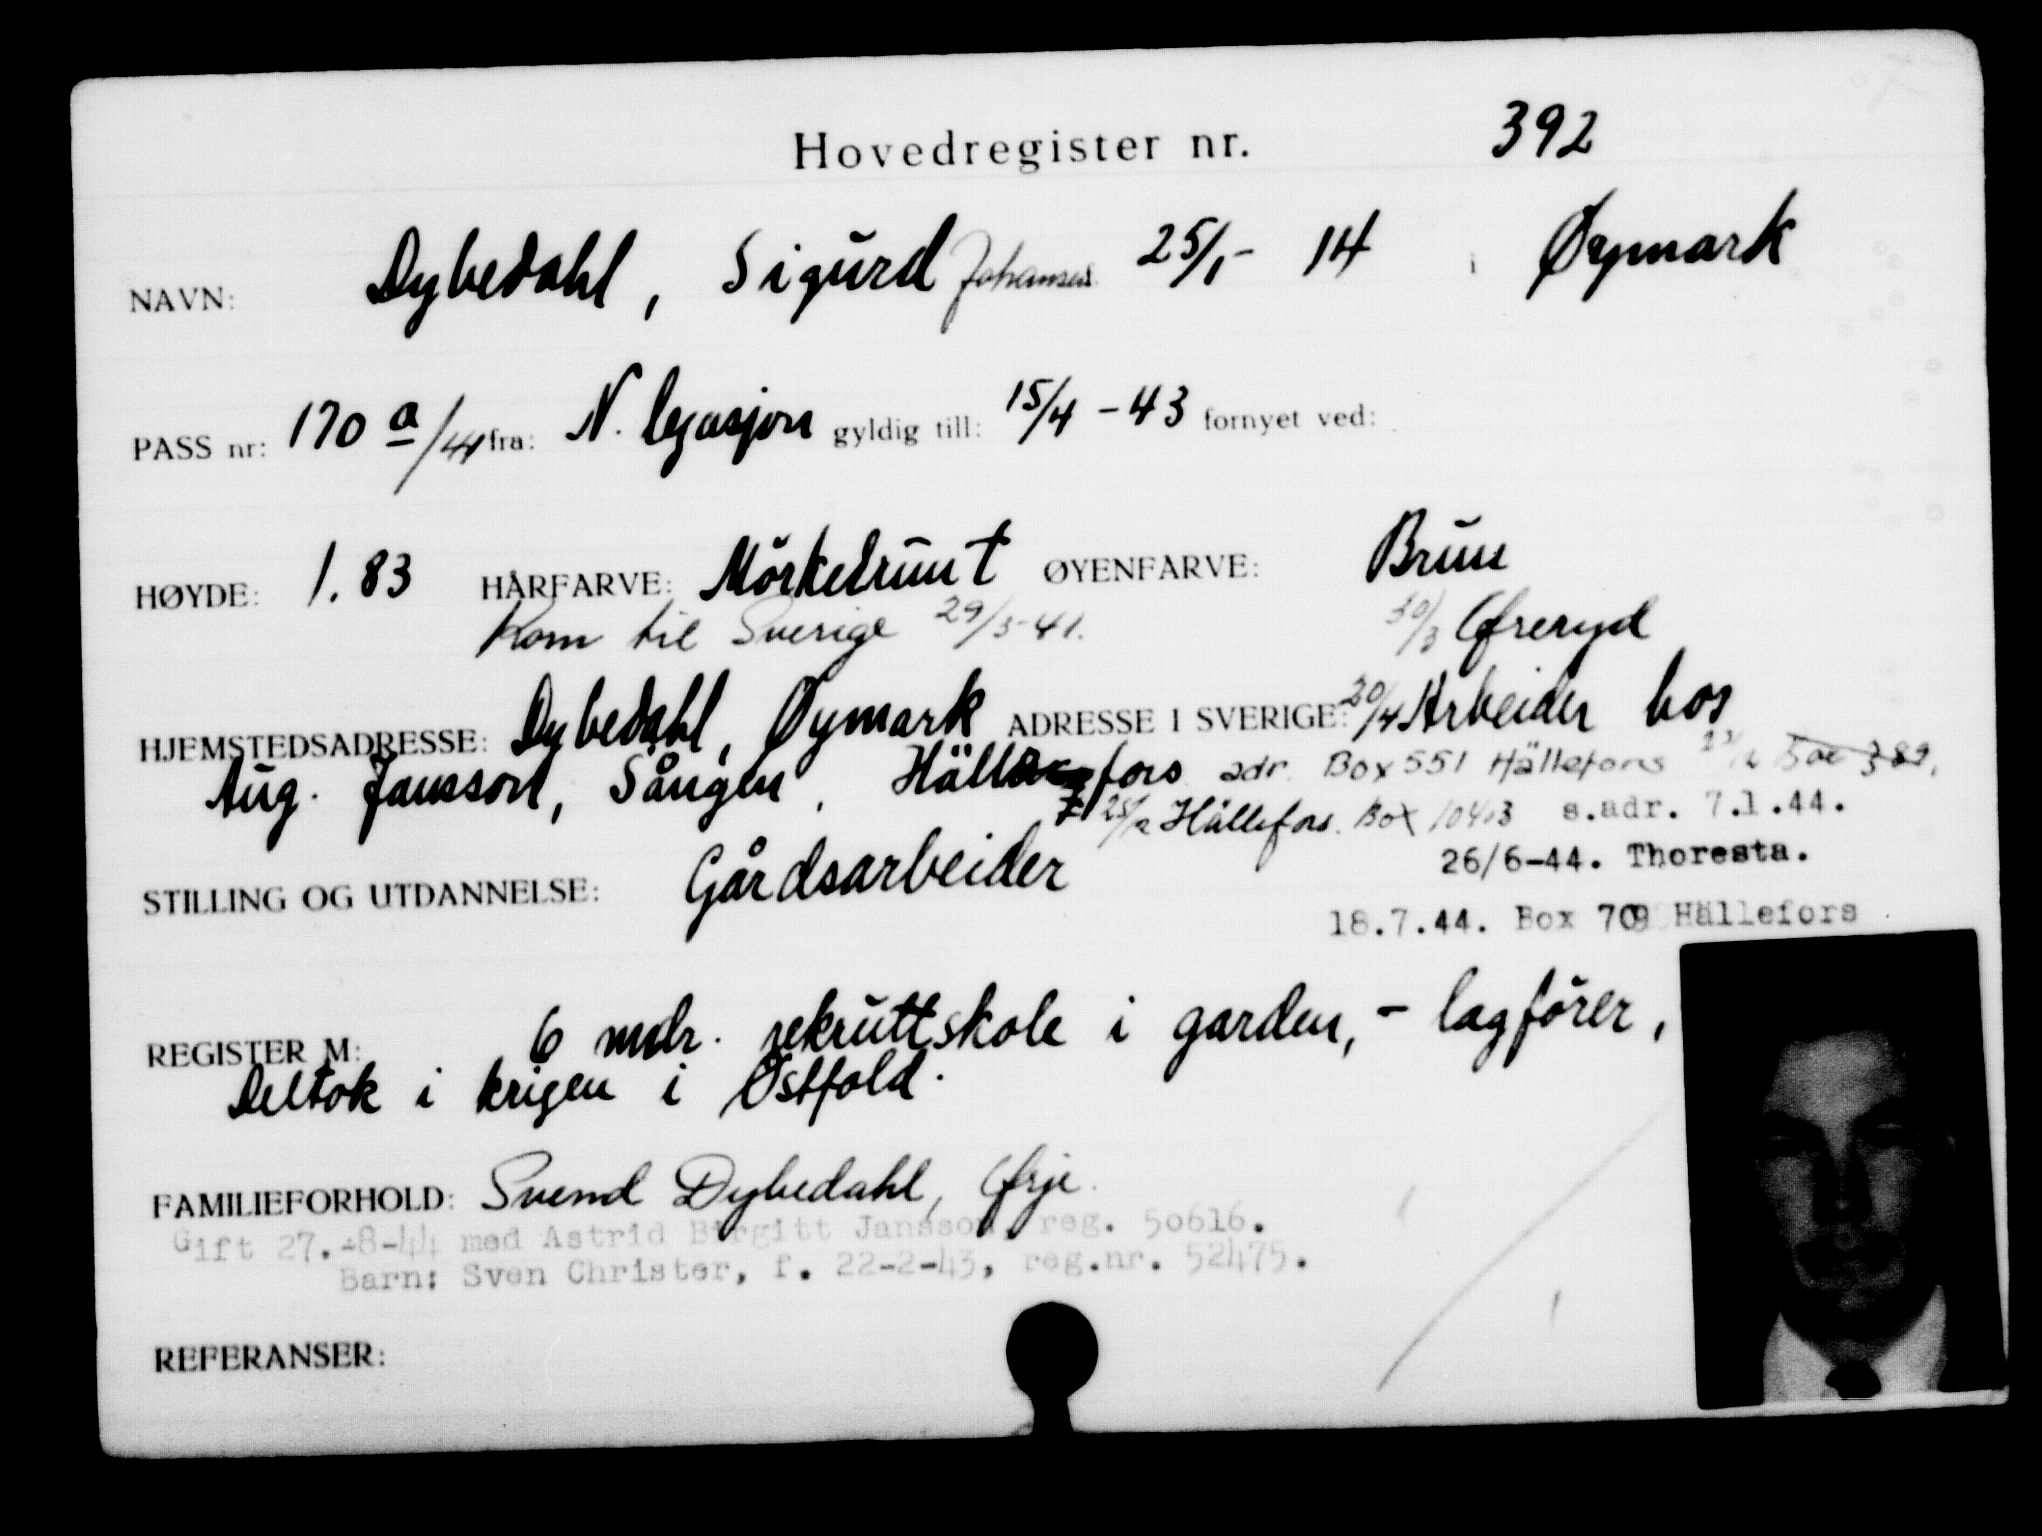 Hovedregister nr. 392
NAVN: Dybedahl, Sigurd Johansen 25/1 - 14 i Øymark
PASS nr: 170 a/41 fra: N. legasjon gyldig till: 15/4 - 43 fornyet ved:
HØYDE: 1.83 HÅRFARVE: Mörkebrunt ØYENFARVE: Brun
Kom til Sverige 29/3-41. 30/3 Öreryd
HJEMSTEDSADRESSE: Dybedahl, Øymark ADRESSE I SVERIGE: 20/4 Arbeider hos
Aug. Jansson, Sången, Hällefors adr. Box 551 Hällefors
Hällefors. Box s.adr. 7.1.44.
26/6-44. Thoresta.
STILLING OG UTDANNELSE: Gårdsarbeider
18.7.44. Box 709 Hällefors
REGISTER M: 6 mdr. rekruttskole i garden, - lagförer,
Deltok i krigen i Østfold.
FAMILIEFORHOLD: Svend Dybedahl, Ørje.
Gift 27.-8-44 med Astrid Birgitt Jansson, reg. 50616.
Barn: Sven Christer, f. 22-2-43, reg.nr. 52475.
REFERANSER: